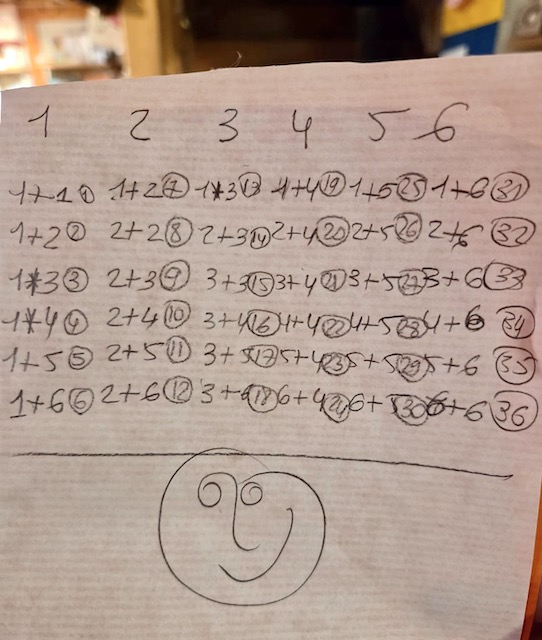 1 2 3 4 5 6
1+1 ① 1+2 ⑦ 1*3 ⑬ 1+4 ⑲ 1+5 ㉕ 1+6 ㉛
1+2 ② 2+2 ⑧ 2+3 ⑭ 2+4 ⑳ 2+5 ㉖ 2+6 ㉜
1*3 ③ 2+3 ⑨ 3+3 ⑮ 3+4 ㉑ 3+5 ㉗ 3+6 ㉝
1*4 ④ 2+4 ⑩ 3+4 ⑯ 4+4 ㉒ 4+5 ㉘ 4+6 ㉞
1+5 ⑤ 2+5 ⑪ 3+5 ⑰ 5+4 ㉓ 5+5 ㉙ 5+6 ㉟
1+6 ⑥ 2+6 ⑫ 3+6 ⑱ 6+4 ㉔ 6+5 ㉚ 6+6 ㊱